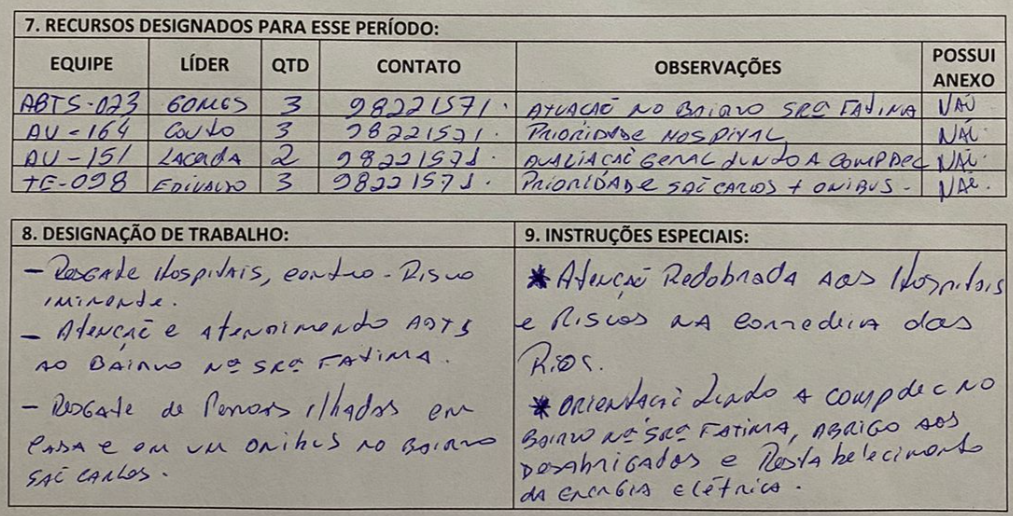 7. RECURSOS DESIGNADOS PARA ESSE PERÍODO:
EQUIPE LÍDER QTD CONTATO OBSERVAÇÕES POSSUI ANEXO
ABTS-023 GOMES 3 98221571. ATUAÇÃO NO BAIRRO SRª FATIMA NÃO
AU-164 COUTO 3 98221571. PRIORIDADE HOSPITAL NÃO.
AU-151 LACERDA 2 98221571. AVALIAÇÃO GERAL JUNTO A COMPDEC NÃO.
TE-098 EDIVALDO 3 98221571. PRIORIDADE SÃO CARLOS + ONIBUS - NÃO.
8. DESIGNAÇÃO DE TRABALHO:
- Resgate Hospitais, centro - Risco
iminente.
- Atenção e atendimento ABTS
ao Bairro Nª SRª FATIMA.
- Resgate de Pessoas ilhadas em
casa e em um onibus no Bairro
São Carlos.
9. INSTRUÇÕES ESPECIAIS:
* Atenção Redobrada aos Hospitais
e Riscos na corredeira das
Rios.
* Orientação Junto a compdec no
Bairro Nª SRª FATIMA, ABRIGO aos
Desabrigados e Restabelecimento
da energia elétrica.